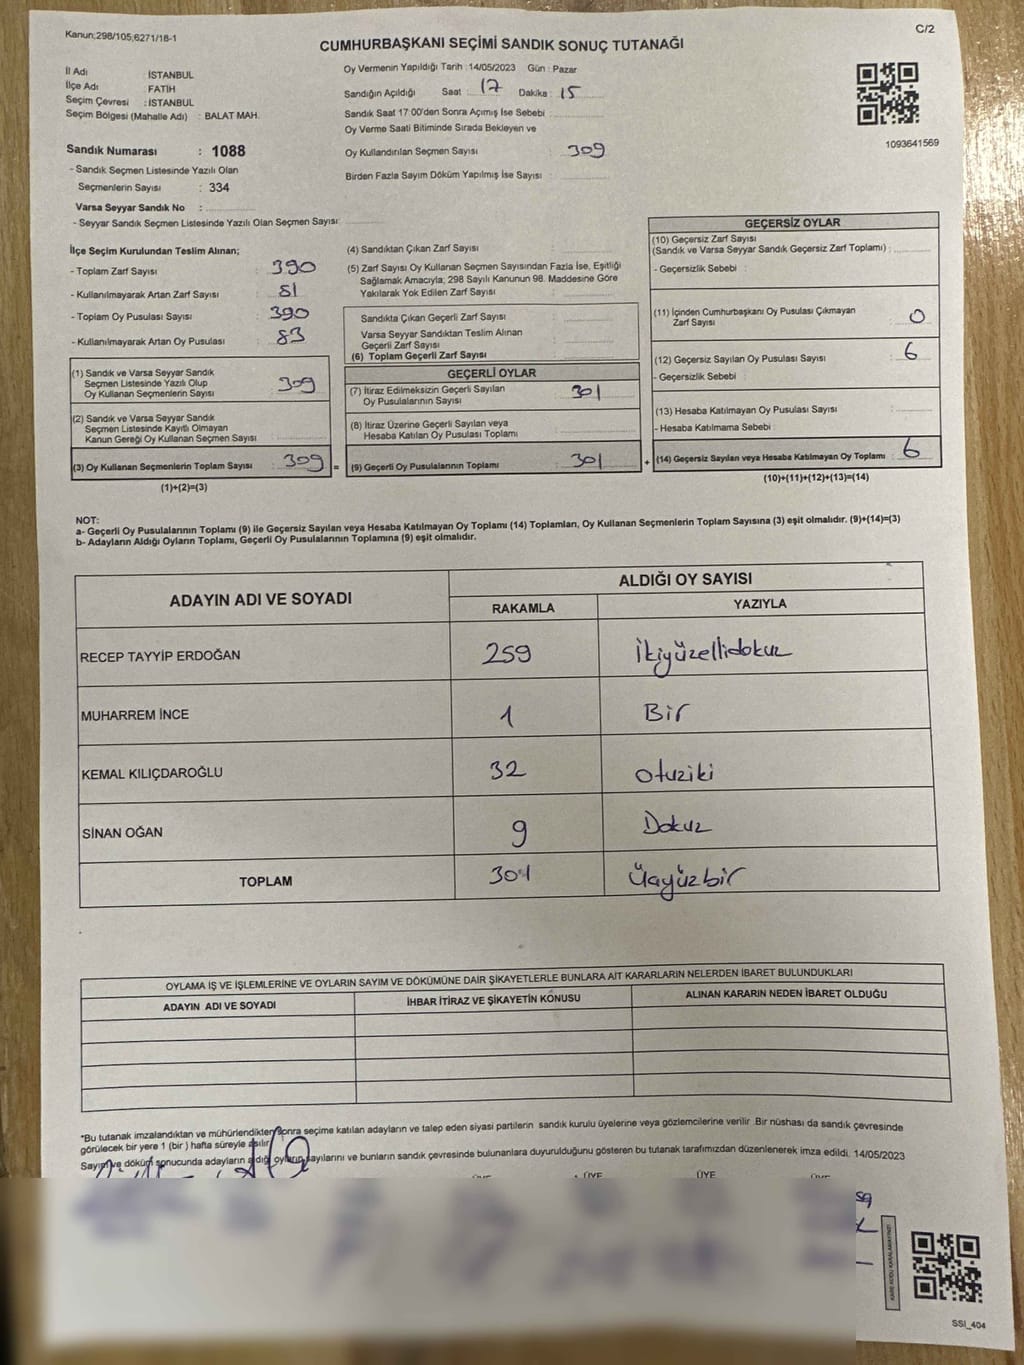 Kanun;298/105,6271/18-1
C/2
CUMHURBAŞKANI SEÇİMİ SANDIK SONUÇ TUTANAĞI
İl Adı : İSTANBUL
İlçe Adı : FATİH
Seçim Çevresi : İSTANBUL
Seçim Bölgesi (Mahalle Adı) : BALAT MAH.
Oy Vermenin Yapıldığı Tarih : 14/05/2023 Gün : Pazar
Sandığın Açıldığı Saat : 17 Dakika : 15
Sandık Saat 17:00'den Sonra Açımış İse Sebebi :
Oy Verme Saati Bitiminde Sırada Bekleyen ve
Oy Kullandırılan Seçmen Sayısı : 309
Birden Fazla Sayım Döküm Yapılmış İse Sayısı :
1093641569
Sandık Numarası : 1088
- Sandık Seçmen Listesinde Yazılı Olan
Seçmenlerin Sayısı : 334
Varsa Seyyar Sandık No :
- Seyyar Sandık Seçmen Listesinde Yazılı Olan Seçmen Sayısı:
İlçe Seçim Kurulundan Teslim Alınan;
- Toplam Zarf Sayısı : 390
- Kullanılmayarak Artan Zarf Sayısı : 81
- Toplam Oy Pusulası Sayısı : 390
- Kullanılmayarak Artan Oy Pusulası : 83
(1) Sandık ve Varsa Seyyar Sandık
Seçmen Listesinde Yazılı Olup
Oy Kullanan Seçmenlerin Sayısı : 309
(2) Sandık ve Varsa Seyyar Sandık
Seçmen Listesinde Kayıtlı Olmayan
Kanun Gereği Oy Kullanan Seçmen Sayısı :
(3) Oy Kullanan Seçmenlerin Toplam Sayısı : 309 =
(1)+(2)=(3)
(4) Sandıktan Çıkan Zarf Sayısı :
(5) Zarf Sayısı Oy Kullanan Seçmen Sayısından Fazla İse, Eşitliği
Sağlamak Amacıyla; 298 Sayılı Kanunun 98. Maddesine Göre
Yakılarak Yok Edilen Zarf Sayısı :
Sandıkta Çıkan Geçerli Zarf Sayısı :
Varsa Seyyar Sandıktan Teslim Alınan
Geçerli Zarf Sayısı :
(6) Toplam Geçerli Zarf Sayısı :
GEÇERLİ OYLAR
(7) İtiraz Edilmeksizin Geçerli Sayılan
Oy Pusulalarının Sayısı : 301
(8) İtiraz Üzerine Geçerli Sayılan veya
Hesaba Katılan Oy Pusulası Toplamı :
(9) Geçerli Oy Pusulalarının Toplamı : 301 +
GEÇERSİZ OYLAR
(10) Geçersiz Zarf Sayısı
(Sandık ve Varsa Seyyar Sandık Geçersiz Zarf Toplamı) :
- Geçersizlik Sebebi :
(11) İçinden Cumhurbaşkanı Oy Pusulası Çıkmayan
Zarf Sayısı : 0
(12) Geçersiz Sayılan Oy Pusulası Sayısı : 6
- Geçersizlik Sebebi :
(13) Hesaba Katılmayan Oy Pusulası Sayısı :
- Hesaba Katılmama Sebebi :
(14) Geçersiz Sayılan veya Hesaba Katılmayan Oy Toplamı : 6
(10)+(11)+(12)+(13)=(14)
NOT:
a- Geçerli Oy Pusulalarının Toplamı (9) ile Geçersiz Sayılan veya Hesaba Katılmayan Oy Toplamı (14) Toplamları, Oy Kullanan Seçmenlerin Toplam Sayısına (3) eşit olmalıdır. (9)+(14)=(3)
b- Adayların Aldığı Oyların Toplamı, Geçerli Oy Pusulalarının Toplamına (9) eşit olmalıdır.
ADAYIN ADI VE SOYADI
ALDIĞI OY SAYISI
RAKAMLA YAZIYLA
RECEP TAYYİP ERDOĞAN 259 İkiyüzellidokuz
MUHARREM İNCE 1 Bir
KEMAL KILIÇDAROĞLU 32 otuziki
SİNAN OĞAN 9 Dokuz
TOPLAM 301 Üçyüzbir
OYLAMA İŞ VE İŞLEMLERİNE VE OYLARIN SAYIM VE DÖKÜMÜNE DAİR ŞİKAYETLERLE BUNLARA AİT KARARLARIN NELERDEN İBARET BULUNDUKLARI
ADAYIN ADI VE SOYADI İHBAR İTİRAZ VE ŞİKAYETİN KONUSU ALINAN KARARIN NEDEN İBARET OLDUĞU
*Bu tutanak imzalandıktan ve mühürlendikten sonra seçime katılan adayların ve talep eden siyasi partilerin sandık kurulu üyelerine veya gözlemcilerine verilir .Bir nüshası da sandık çevresinde
görülecek bir yere 1 (bir ) hafta süreyle asılır.
Sayım ve döküm sonucunda adayların aldığı oyların sayılarını ve bunların sandık çevresinde bulunanlara duyurulduğunu gösteren bu tutanak tarafımızdan düzenlenerek imza edildi. 14/05/2023
ÜYE ÜYE ÜYE ÜYE
SSI_404